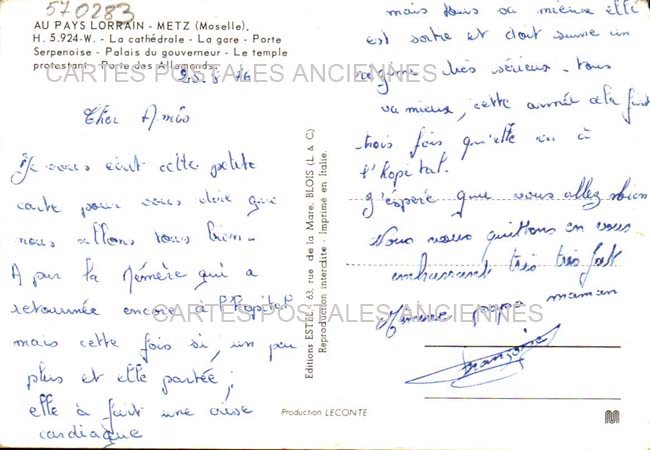 570283
AU PAYS LORRAIN - METZ (Moselle).
H. 5.924-W. - La cathédrale - La gare - Porte
Serpenoise - Palais du gouverneur - Le temple
protestant - Porte des Allemands.
CARTES POSTALES ANCIENNES
Cher Amis
Je vous écrit cette petite
carte pour vous dire que
nous allons tous bien.
A par la Mémère qui a
retournée encore à l'hopital
mais cette fois si, un peu
plus et elle partée,
elle à fait une crise
cardiaque
Editions ESTEL - 63, rue de la Mare, BLOIS (L. & C)
Reproduction interdite - Imprimé en Italie.
mais tous va mieux elle
est sortie et doit suivre un
régime très sérieux. tous
va mieux, cette année cela fait
trois fois qu'elle va à
l'hopital.
J'éspère que vous allez bien
Nous vous quittons en vous
embrassant très très fort
Mémère papa maman
CARTES POSTALES ANCIENNES
Françoise
Production LECONTE